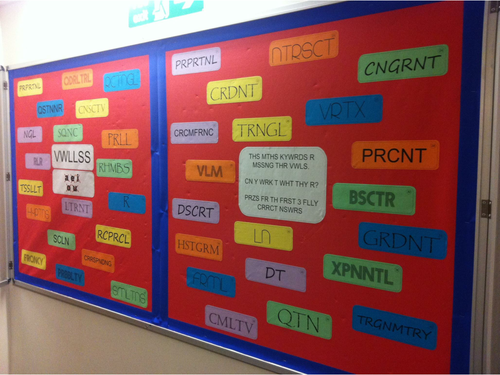 PRPRTNL
QDRLTRL
QSTNNR
CNSCTV
NGL
SQNC
PRLL
VWLLSS
RHMBS
TSSLLT
LTRNT
R
SCLN
RCPRCL
FRQNCY
PRBBLTY
PRPRTNL
NTRSCT
CNGRNT
CRDNT
VRTX
CRCMFRNC
TRNGL
PRCNT
VLM
THS MTHS KYWRDS R
MSSNG THR VWLS.
CN Y WRK T WHT THY R?
PRZS FR TH FRST 3 FLLY
CRRCT NSWRS
BSCTR
DSCRT
LN
GRDNT
HSTGRM
DT
XPNNTL
FRML
CMLTV
QTN
TRGNMTRY